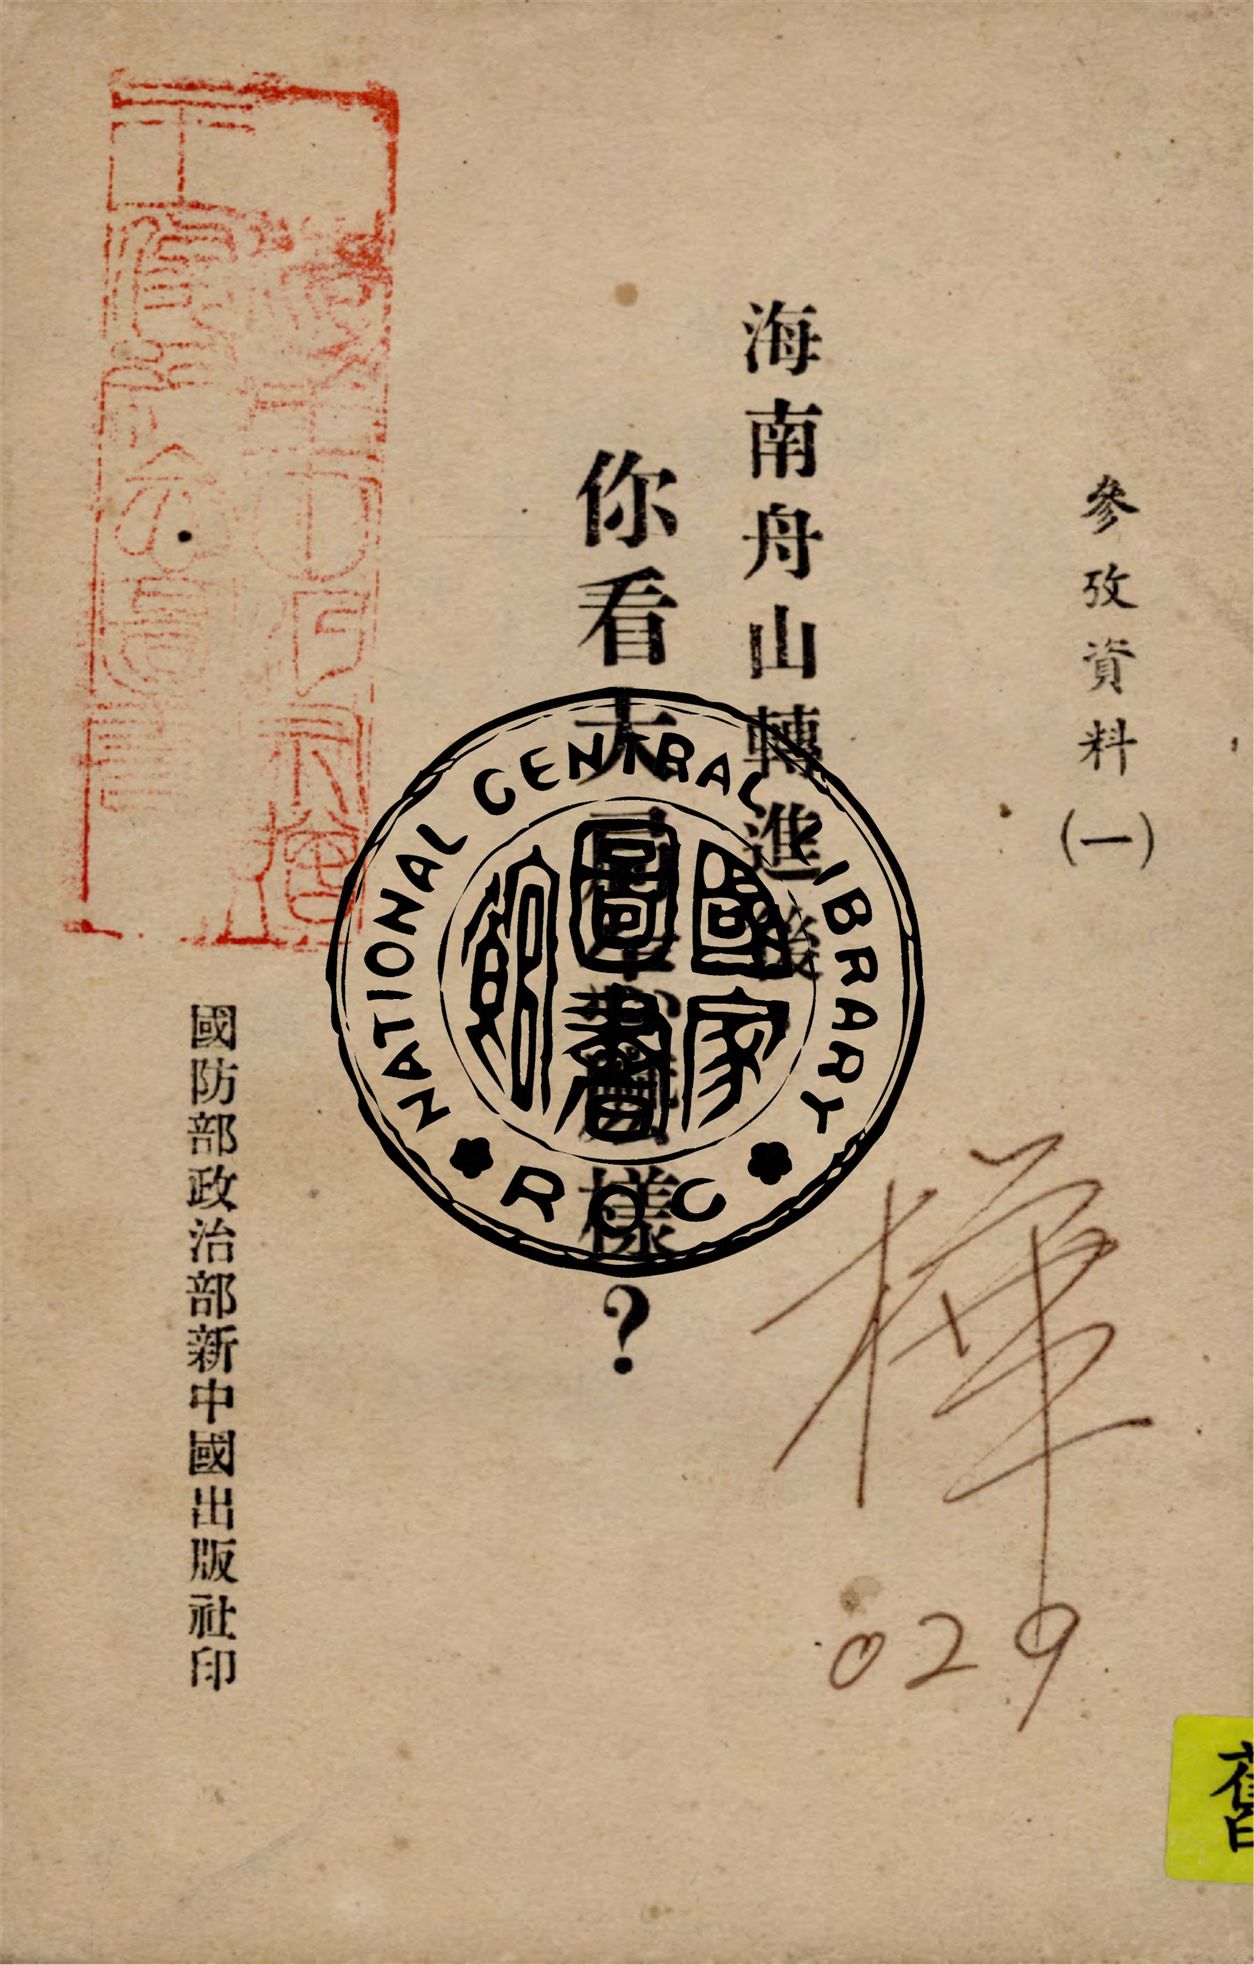 參攷資料(一)
海南舟山轉進後
你看大局 樣?
國防部政治部新中國出版社印
NATIONAL CENTRAL LIBRARY
ROC
國家圖書館
樺
029
舊